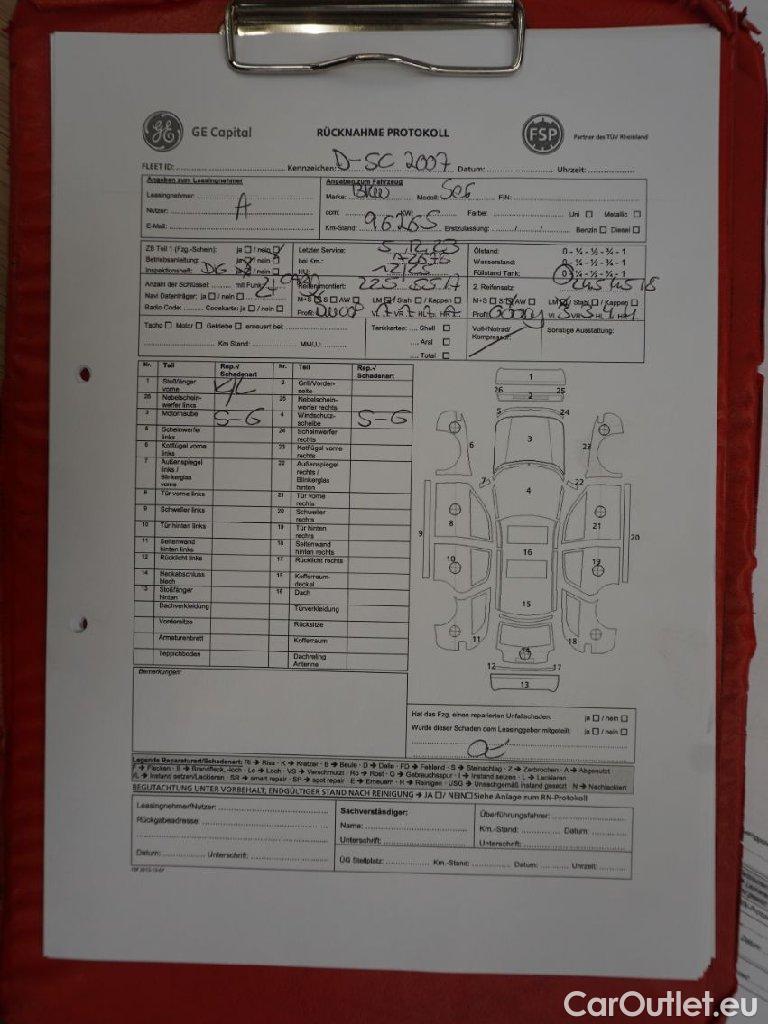 GE Capital
RÜCKNAHME PROTOKOLL
FSP
Partner des TÜV Rheinland
FLEET ID: Kennzeichen: D-SC 2007 Datum: Uhrzeit:
Angaben zum Leasingnehmer
Angaben zum Fahrzeug
Leasingnehmer:
Marke: BMW Modell: FIN:
Nutzer: A
ccm: KW: Farbe: Uni Metallic
E-Mail:
Km-Stand: 96265 Erstzulassung: / / Benzin Diesel
ZB Teil 1 (Fzg.-Schein): ja / nein
Letzter Service:
Ölstand: 0 - ¼ - ½ - ¾ - 1
Betriebsanleitung: ja / nein
bei Km:
Wasserstand: 0 - ¼ - ½ - ¾ - 1
Inspektionsheft:
HU:
Füllstand Tank: 0 - ¼ - ½ - ¾ - 1
Anzahl der Schlüssel: mit Funk:
Reifenmontiert: 225 55 17
2. Reifensatz: 245 45 18
Navi Datenträger: ja / nein
LM / Stah / Kappen
LM / Stahl / Kappen
Radio Code: Codekarte: ja / nein
Profil:
Profil:
Tacho Motor Getriebe erneuert bei:
Tankkarten: Shell
Voll-/Notrad/
Kompressor:
Sonstige Ausstattung:
Km Stand: MM/JJ:
Aral
Total
Nr. Teil Rep.-/ Schadenart Nr. Teil Rep.-/ Schadenart:
1 Stoßfänger vorne 2 Grill/Vorder-seite
26 Nebelschein-werfer links 25 Nebelschein-werfer rechts
3 Motorhaube S-G 4 Windschutz-scheibe S-G
5 Scheinwerfer links 24 Scheinwerfer rechts
6 Kotflügel vorne links 23 Kotflügel vorne rechts
7 Außenspiegel links / Blinkerglas vorne 22 Außenspiegel rechts / Blinkerglas hinten
8 Tür vorne links 21 Tür vorne rechts
9 Schweller links 20 Schweller rechts
10 Tür hinten links 19 Tür hinten rechts
11 Seitenwand hinten links 18 Seitenwand hinten rechts
12 Rücklicht links 17 Rücklicht rechts
14 Heckabschluss blech 15 Kofferraum-deckel
13 Stoßfänger hinten 16 Dach
Dachverkleidung Türverkleidung
Vordersitze Rücksitze
Armaturenbrett Kofferraum
Teppichboden Dachreling Antenne
Bemerkungen:
1
26 25
2
5 24
3
6 23
7 22
4
8 21
9 20
16
10 19
15
11 18
14
12 17
13
Hat das Fzg. einen reparierten Unfallschaden ja / nein
Wurde dieser Schaden dem Leasinggeber mitgeteilt: ja / nein
Legende Reparaturen/Schadenart: Ri → Riss - K → Kratzer - B → Beule - D → Delle - FD → Fehlend - S → Steinschlag - Z → Zerbrochen - A → Abgenutzt
F → Flecken - B → Brandfleck, -loch - Lo → Loch - VS → Verschmutzt - Ro → Rost - G → Gebrauchsspur - I → Instand setzen - L → Lackieren
I/L → Instand setzen/Lackieren - SR → smart repair - SP → spot repair - E → Erneuern - R → Reinigen - USG → Unsachgemäß instand gesetzt N → Nachlackiert
BEGUTACHTUNG UNTER VORBEHALT, ENDGÜLTIGER STAND NACH REINIGUNG → JA / NEIN Siehe Anlage zum RN-Protokoll
Leasingnehmer/Nutzer:
Sachverständiger:
Überführungsfahrer:
Rückgabeadresse:
Name:
Km.-Stand: Datum:
Unterschrift:
Unterschrift:
Datum: Unterschrift:
ÜG Stellplatz: Km.-Stand: Datum: Uhrzeit:
CarOutlet.eu